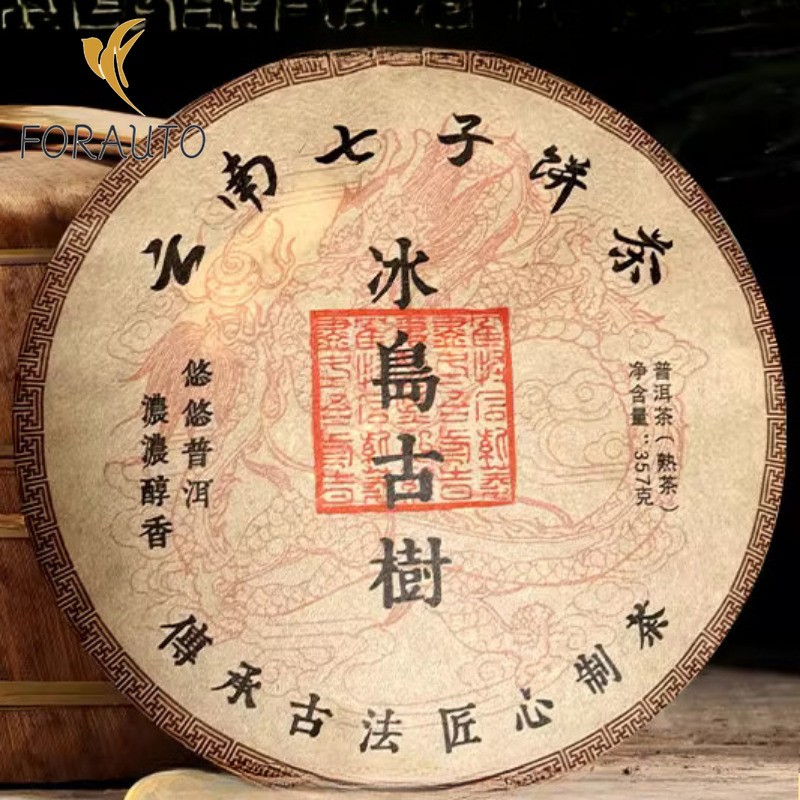 FORAUTO
云南七子饼茶
冰島古樹
悠悠普洱
濃濃醇香
普洱茶(熟茶)
净含量:357克
傳承古法匠心制茶